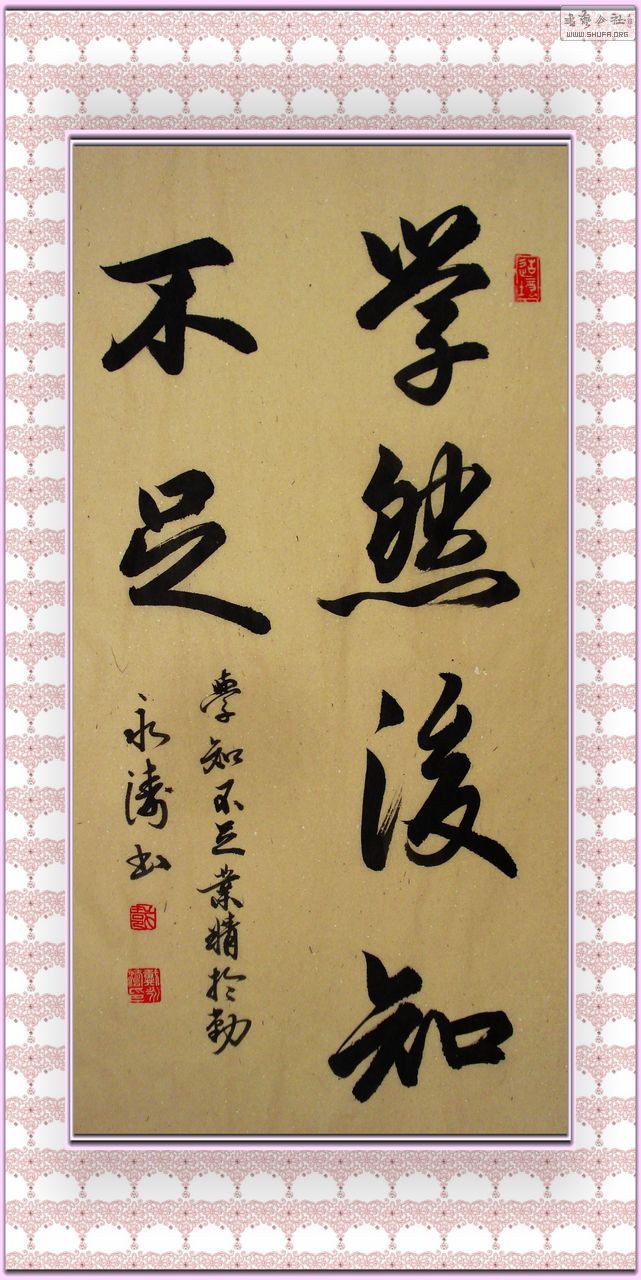 学然後知
不足
學知不足業精於勤
永濤书
书法公社
WWW.SHUFA.ORG